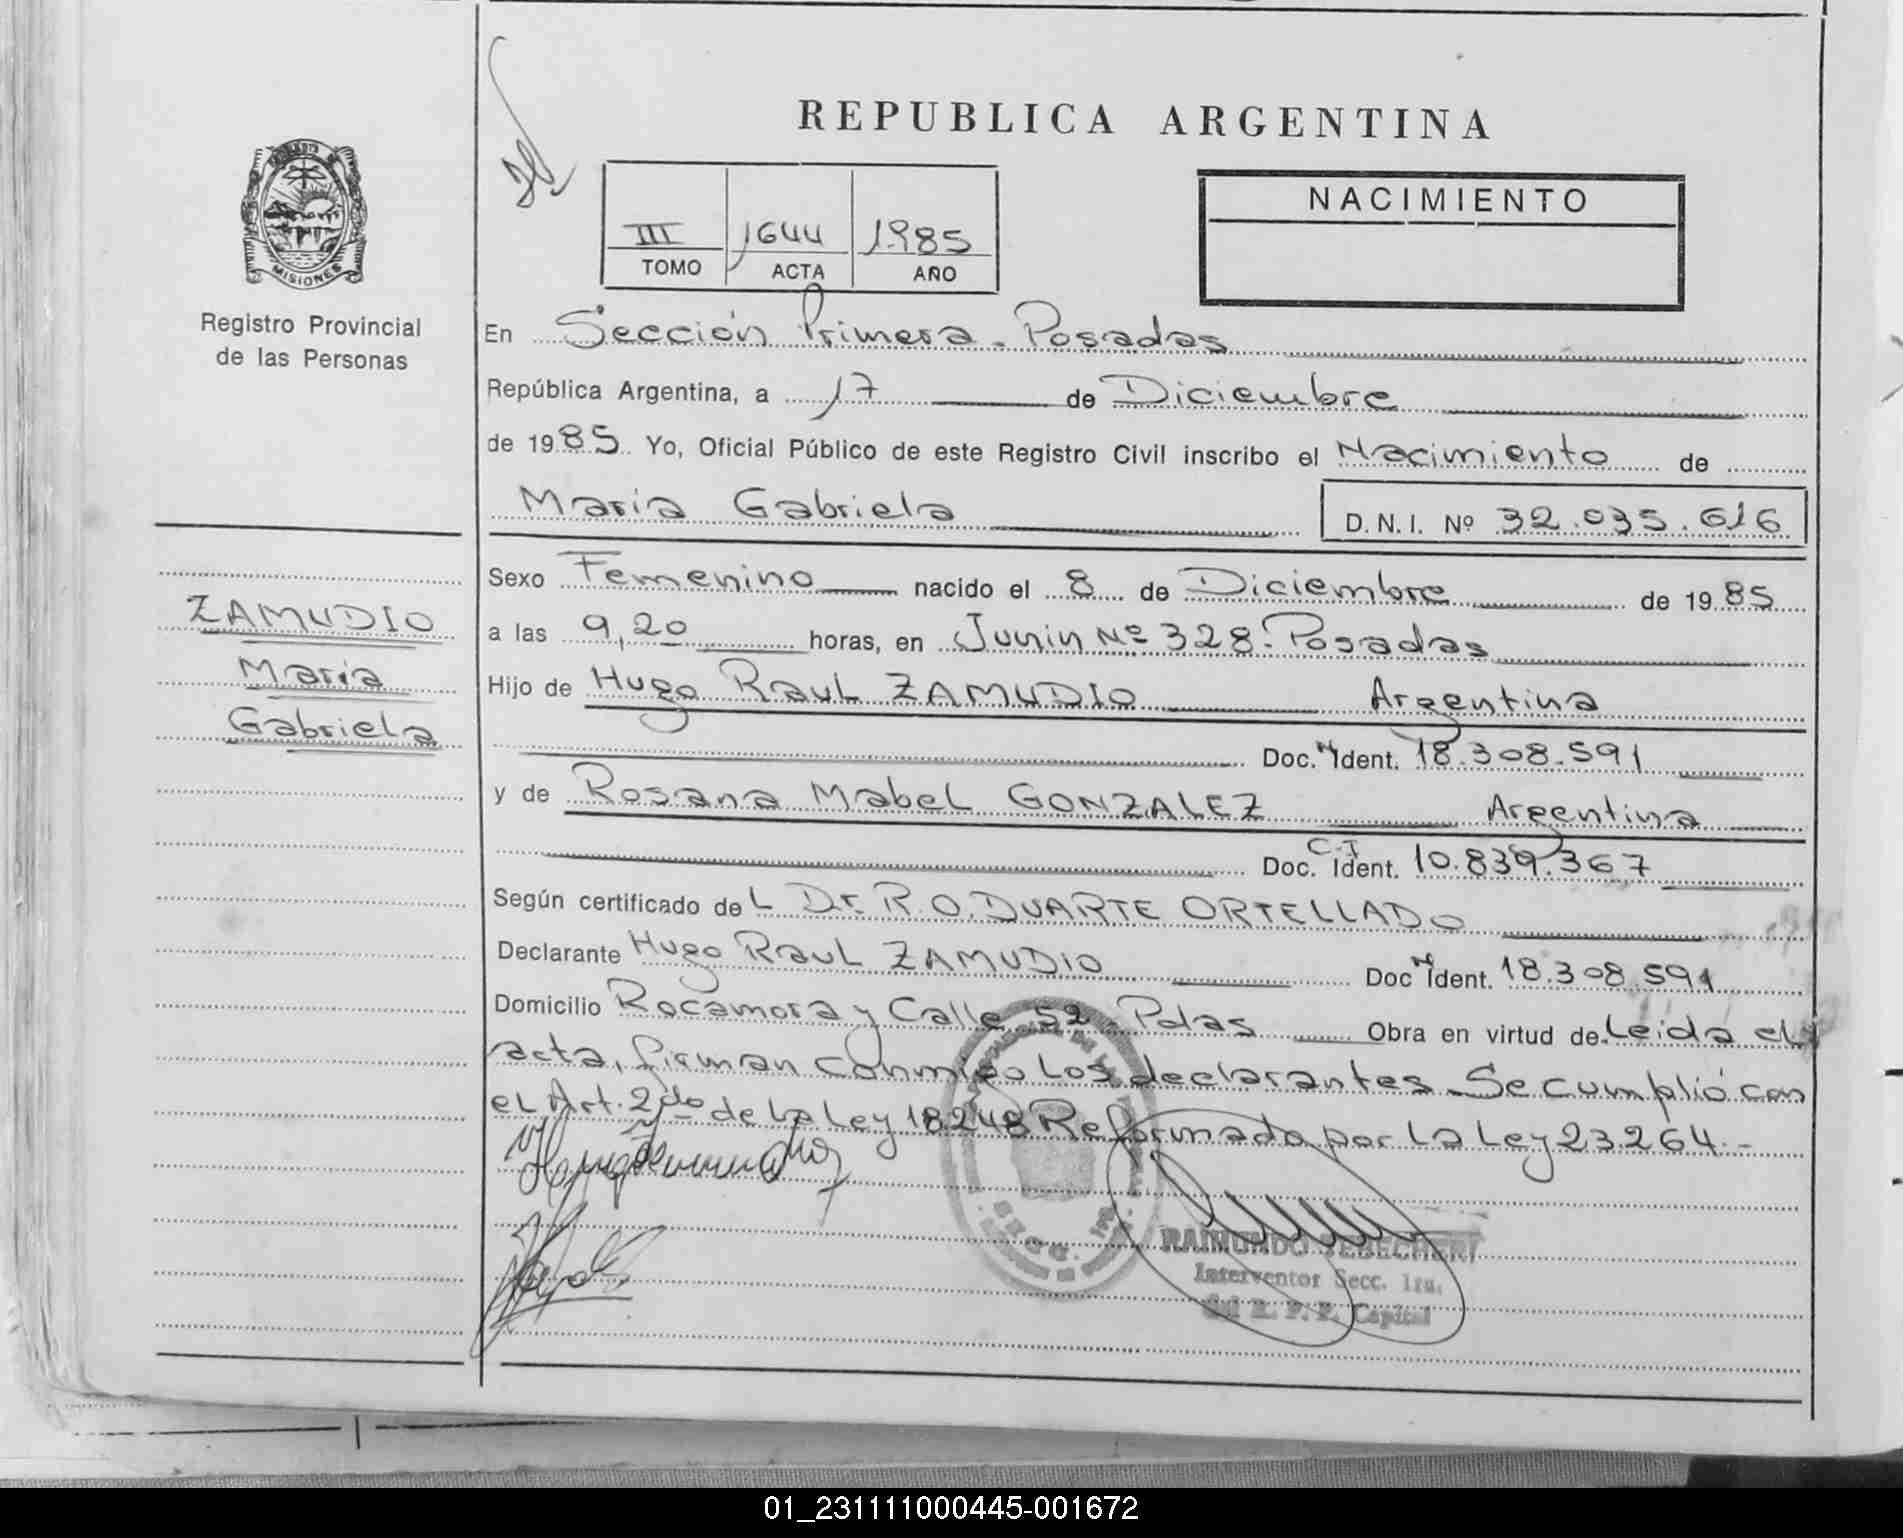 REPUBLICA ARGENTINA
MISIONES
Registro Provincial
de las Personas
III 1644 1985
TOMO ACTA AÑO
NACIMIENTO
En Sección Primera - Posadas
República Argentina, a 17 de Diciembre
de 1985 Yo, Oficial Público de este Registro Civil inscribo el Nacimiento de
Maria Gabriela D. N. I. Nº 32.035.616
ZAMUDIO
Maria
Gabriela
Sexo Femenino nacido el 8 de Diciembre de 1985
a las 9,20 horas, en Junin Nº 328. Posadas
Hijo de Hugo Raul ZAMUDIO Argentina
Doc. Ident. 18.308.591
y de Rosana Mabel GONZALEZ Argentina
Doc. C.I Ident. 10.839.367
Según certificado del Dr. R. O. DUARTE ORTELLADO
Declarante Hugo Raul ZAMUDIO Doc Ident. 18.308.591
Domicilio Rocamora y Calle 52 - Pdas Obra en virtud de Leida el
acta, firman conmigo los declarantes. Se cumplió con
el Art. 2do de la Ley 18248 Reformado por la Ley 23264.-
RAIMUNDO
Interventor Secc. 1ra.
del R. P. P. Capital
01_231111000445-001672